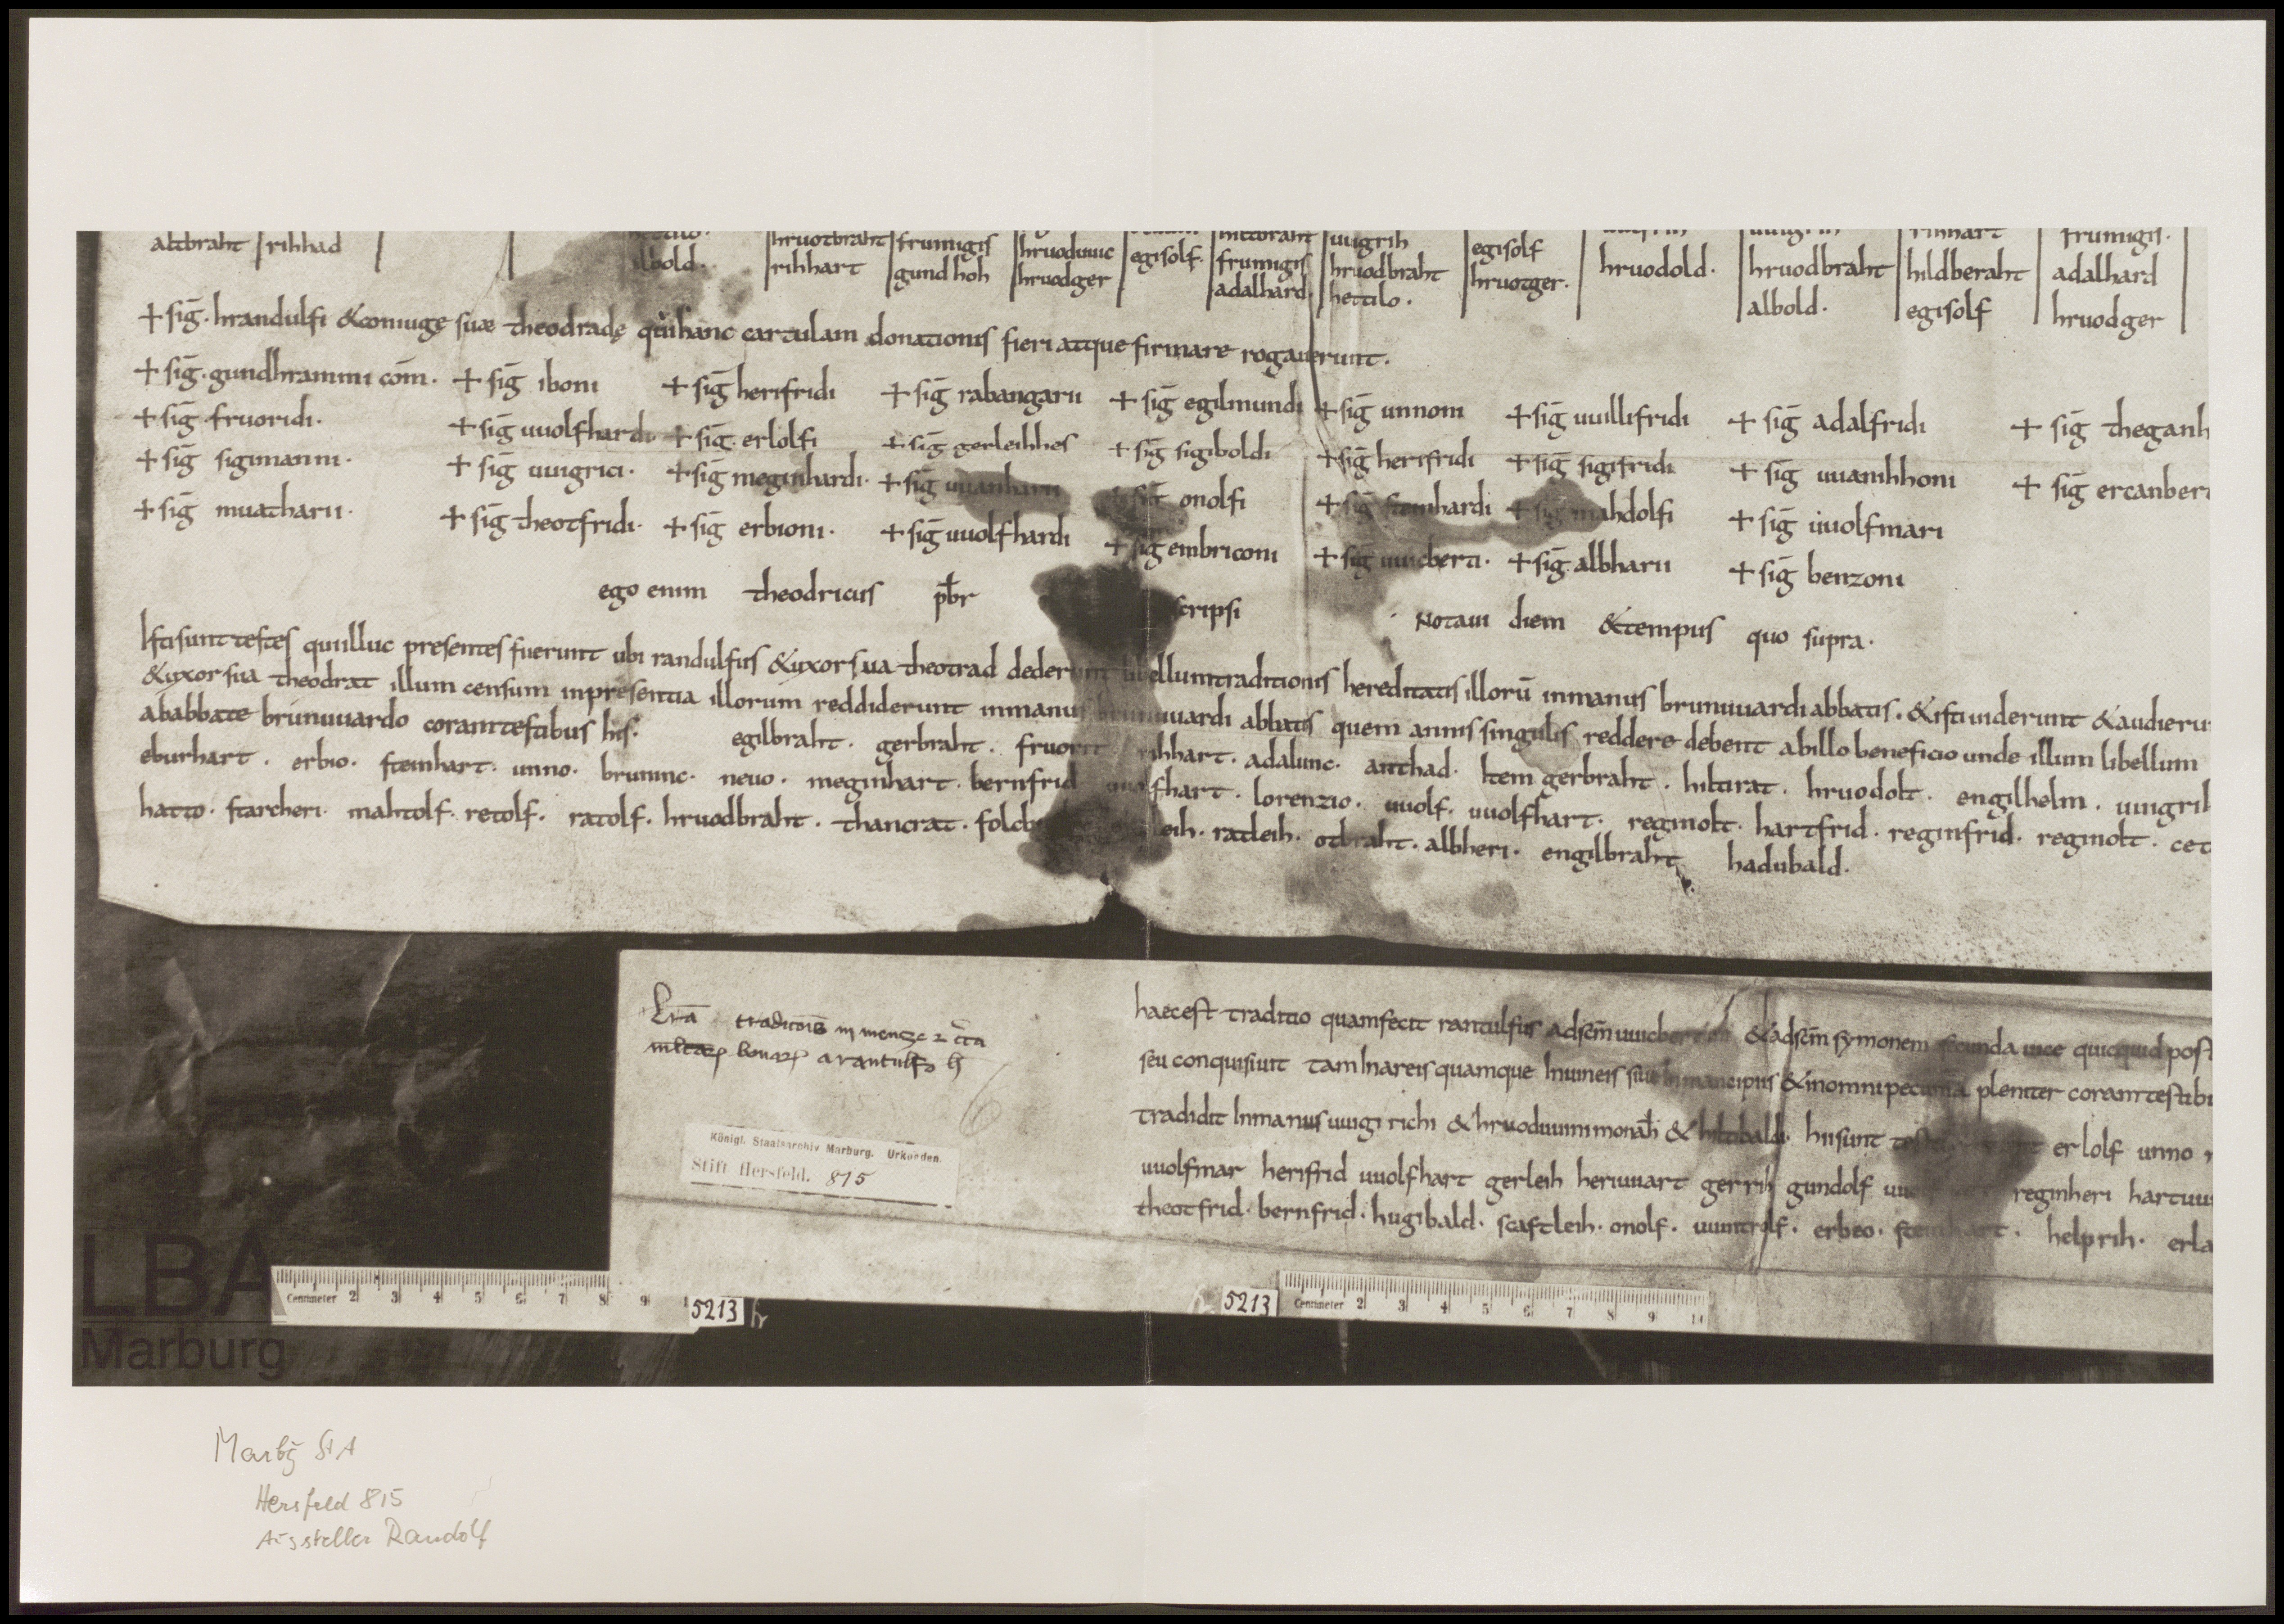 altbraht rihhad
albold.
hruotbraht rihhart
frumigis gund hoh
hruoduuic hruodger
egisolf.
hiltbraht frumigis adalhard.
uuigrih hruodbraht hettilo.
egisolf hruotger.
hruodold.
hruodbraht albold.
rihhart hildberaht egisolf
frumigis. adalhard hruodger
+ sig̅. hrandulfi & coniuge suae theodrade qui hanc cartulam donationis fieri atque firmare rogauerunt.
+ sig̅. gundhrammi com̅. + sig̅ iboni + sig̅ herifridi + sig̅ rabangarii + sig̅ egilmundi + sig̅ unnoni + sig̅ uuillifridi + sig̅ adalfridi + sig̅ theganh
+ sig̅ fruoridi. + sig̅ uuolfhardi + sig̅. erlolfi + sig̅ gerleihhes + sig̅ sigiboldi + sig̅ herifridi + sig̅ sigifridi + sig̅ uuanihhoni + sig̅ ercanberi
+ sig̅ sigimanni. + sig̅ uuigrici. + sig̅ meginhardi. + sig̅ uuanharii + sig̅ onolfi + sig̅ steinhardi + sig̅ mahdolfi + sig̅ uuolfmari
+ sig̅ muatharii. + sig̅ theotfridi. + sig̅ erbioni. + sig̅ uuolfhardi + sig̅ embriconi + sig̅ uuicberti. + sig̅. albharii + sig̅ benzoni
ego enim theodricus pbr scripsi Notaui diem & tempus quo supra.
Isti sunt testes qui illuc presentes fuerunt ubi randulfus & uxor sua theotrad dederunt libellum traditionis hereditatis illoru̅ in manus brunuuardi abbatis. & isti uiderunt & audieru
& uxor sua theodrat illum censum in presentia illorum reddiderunt in manus brunuuardi abbatis quem annis singulis reddere debent ab illo beneficio unde illum libellum
ab abbate brunuuardo coram testibus his. egilbraht. gerbraht. fruorit rihhart. adalunc. anthad. Item gerbraht. hiltirat. hruodolt. engilhelm. uuigrih
eburhart. erbio. steinhart. unno. bruninc. neuo. meginhart. bernfrid uuolfhart. lorenzio. uuolf. uuolfhart. reginolt. hartfrid. reginfrid. reginolt. cet
hatto. starcheri. mahtolf. retolf. ratolf. hruodbraht. thancrat. folcb leih. ratleih. otbraht. albheri. engilbraht hadubald.
Lr̅a tradito̅is in
bonoꝝ a rantulfo
6
Königl. Staatsarchiv Marburg. Urkunden.
Stift Hersfeld. 815
haec est traditio quam fecit rantulfus ad sc̅m uuicbertum & ad sc̅m symonem secunda uice quicquid pos
seu conquisiuit tam In areis quamque In uineis siue In mancipiis & in omni pecunia pleniter coram testibu
tradidit In manus uuigirichi & hruoduuini monach̅ & hiltibaldi. hii sunt testes erlolf unno
uuolfmar herifrid uuolfhart gerleih heriuuart gerrih gundolf reginheri hartuu
theotfrid. bernfrid. hugibald. scaftleih. onolf. uuntrolf. erbeo. steinhart. helprih. erla
LBA
Marburg
Centimeter 2 3 4 5 6 7 8 9
5213
5213
Centimeter 2 3 4 5 6 7 8 9
Marbg StA
Hersfeld 815
Aussteller Randolf